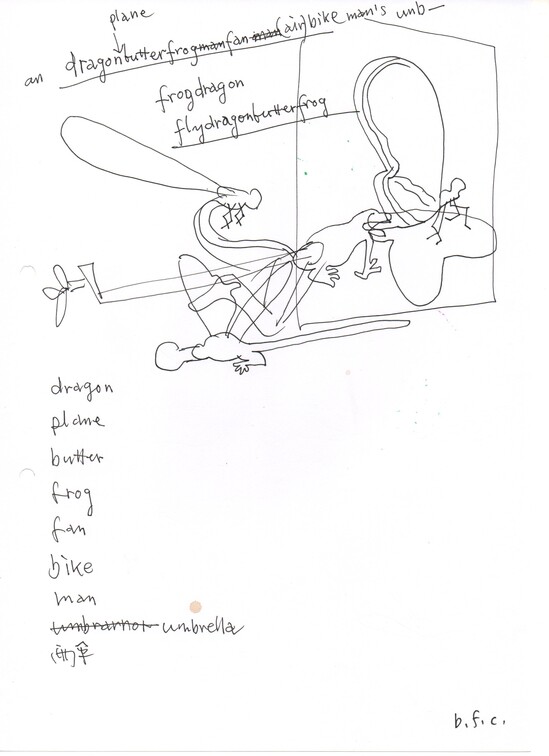 plane
an dragonbutterfrogmanfan man (air)bike man's umb—
frogdragon
flydragonbutterfrog
dragon
plane
butter
frog
fan
bike
man
umbrella
雨傘
b.f.c.